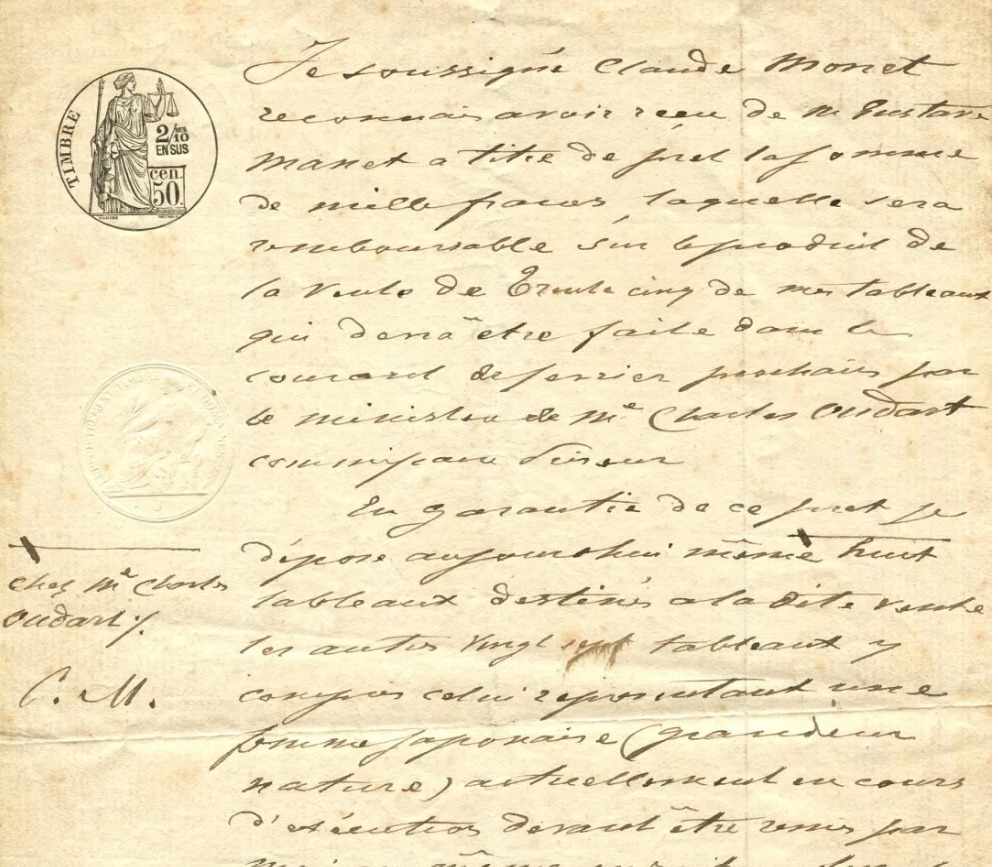 TIMBRE
2/10 EN SUS
cen. 50
Je soussigné Claude Monet
reconnais avoir reçu de M Gustave
Manet a titre de pret la somme
de mille francs, laquelle sera
remboursable sur le produit de
la vente de Trente cinq de mes tableaux
qui devra être faite dans le
courant de fevrier prochain par
le ministere de Me Charles Oudart
commissaire Priseur
En garantie de ce pret je
dépose aujourdhui même huit
tableaux destinés a la dite vente
les autres vingt sept tableaux y
compris celui representant une
femme Japonaise (grandeur
nature) actuellement en cours
d'exécution devant être remis par
chez Me Charles
Oudart /.
C. M.